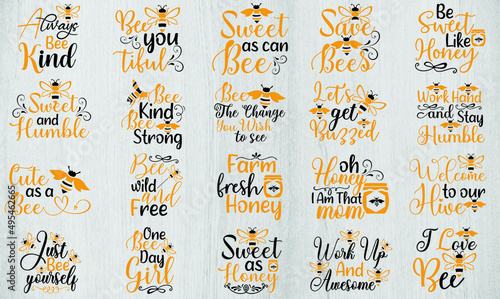 Always
Bee
Kind
Bee
you
tiful
Sweet
as can
Bee
Save
Bees
Be
Sweet
Like
Honey
Sweet
and
Humble
Bee
Kind
Bee
Strong
Bee
The Change
You Wish
to see
Let's
get
Buzzed
Work Hand
and Stay
Humble
Cute
as a
Bee
Bee
wild
and
Free
Farm
fresh
Honey
oh
Honey
I Am That
mom
Welcome
to our
Hive
Just
Bee
yourself
One
Bee
Day
Girl
Sweet
as
Honey
Work Up
And
Awesome
I Love
Bee
Adobe Stock | #495462665